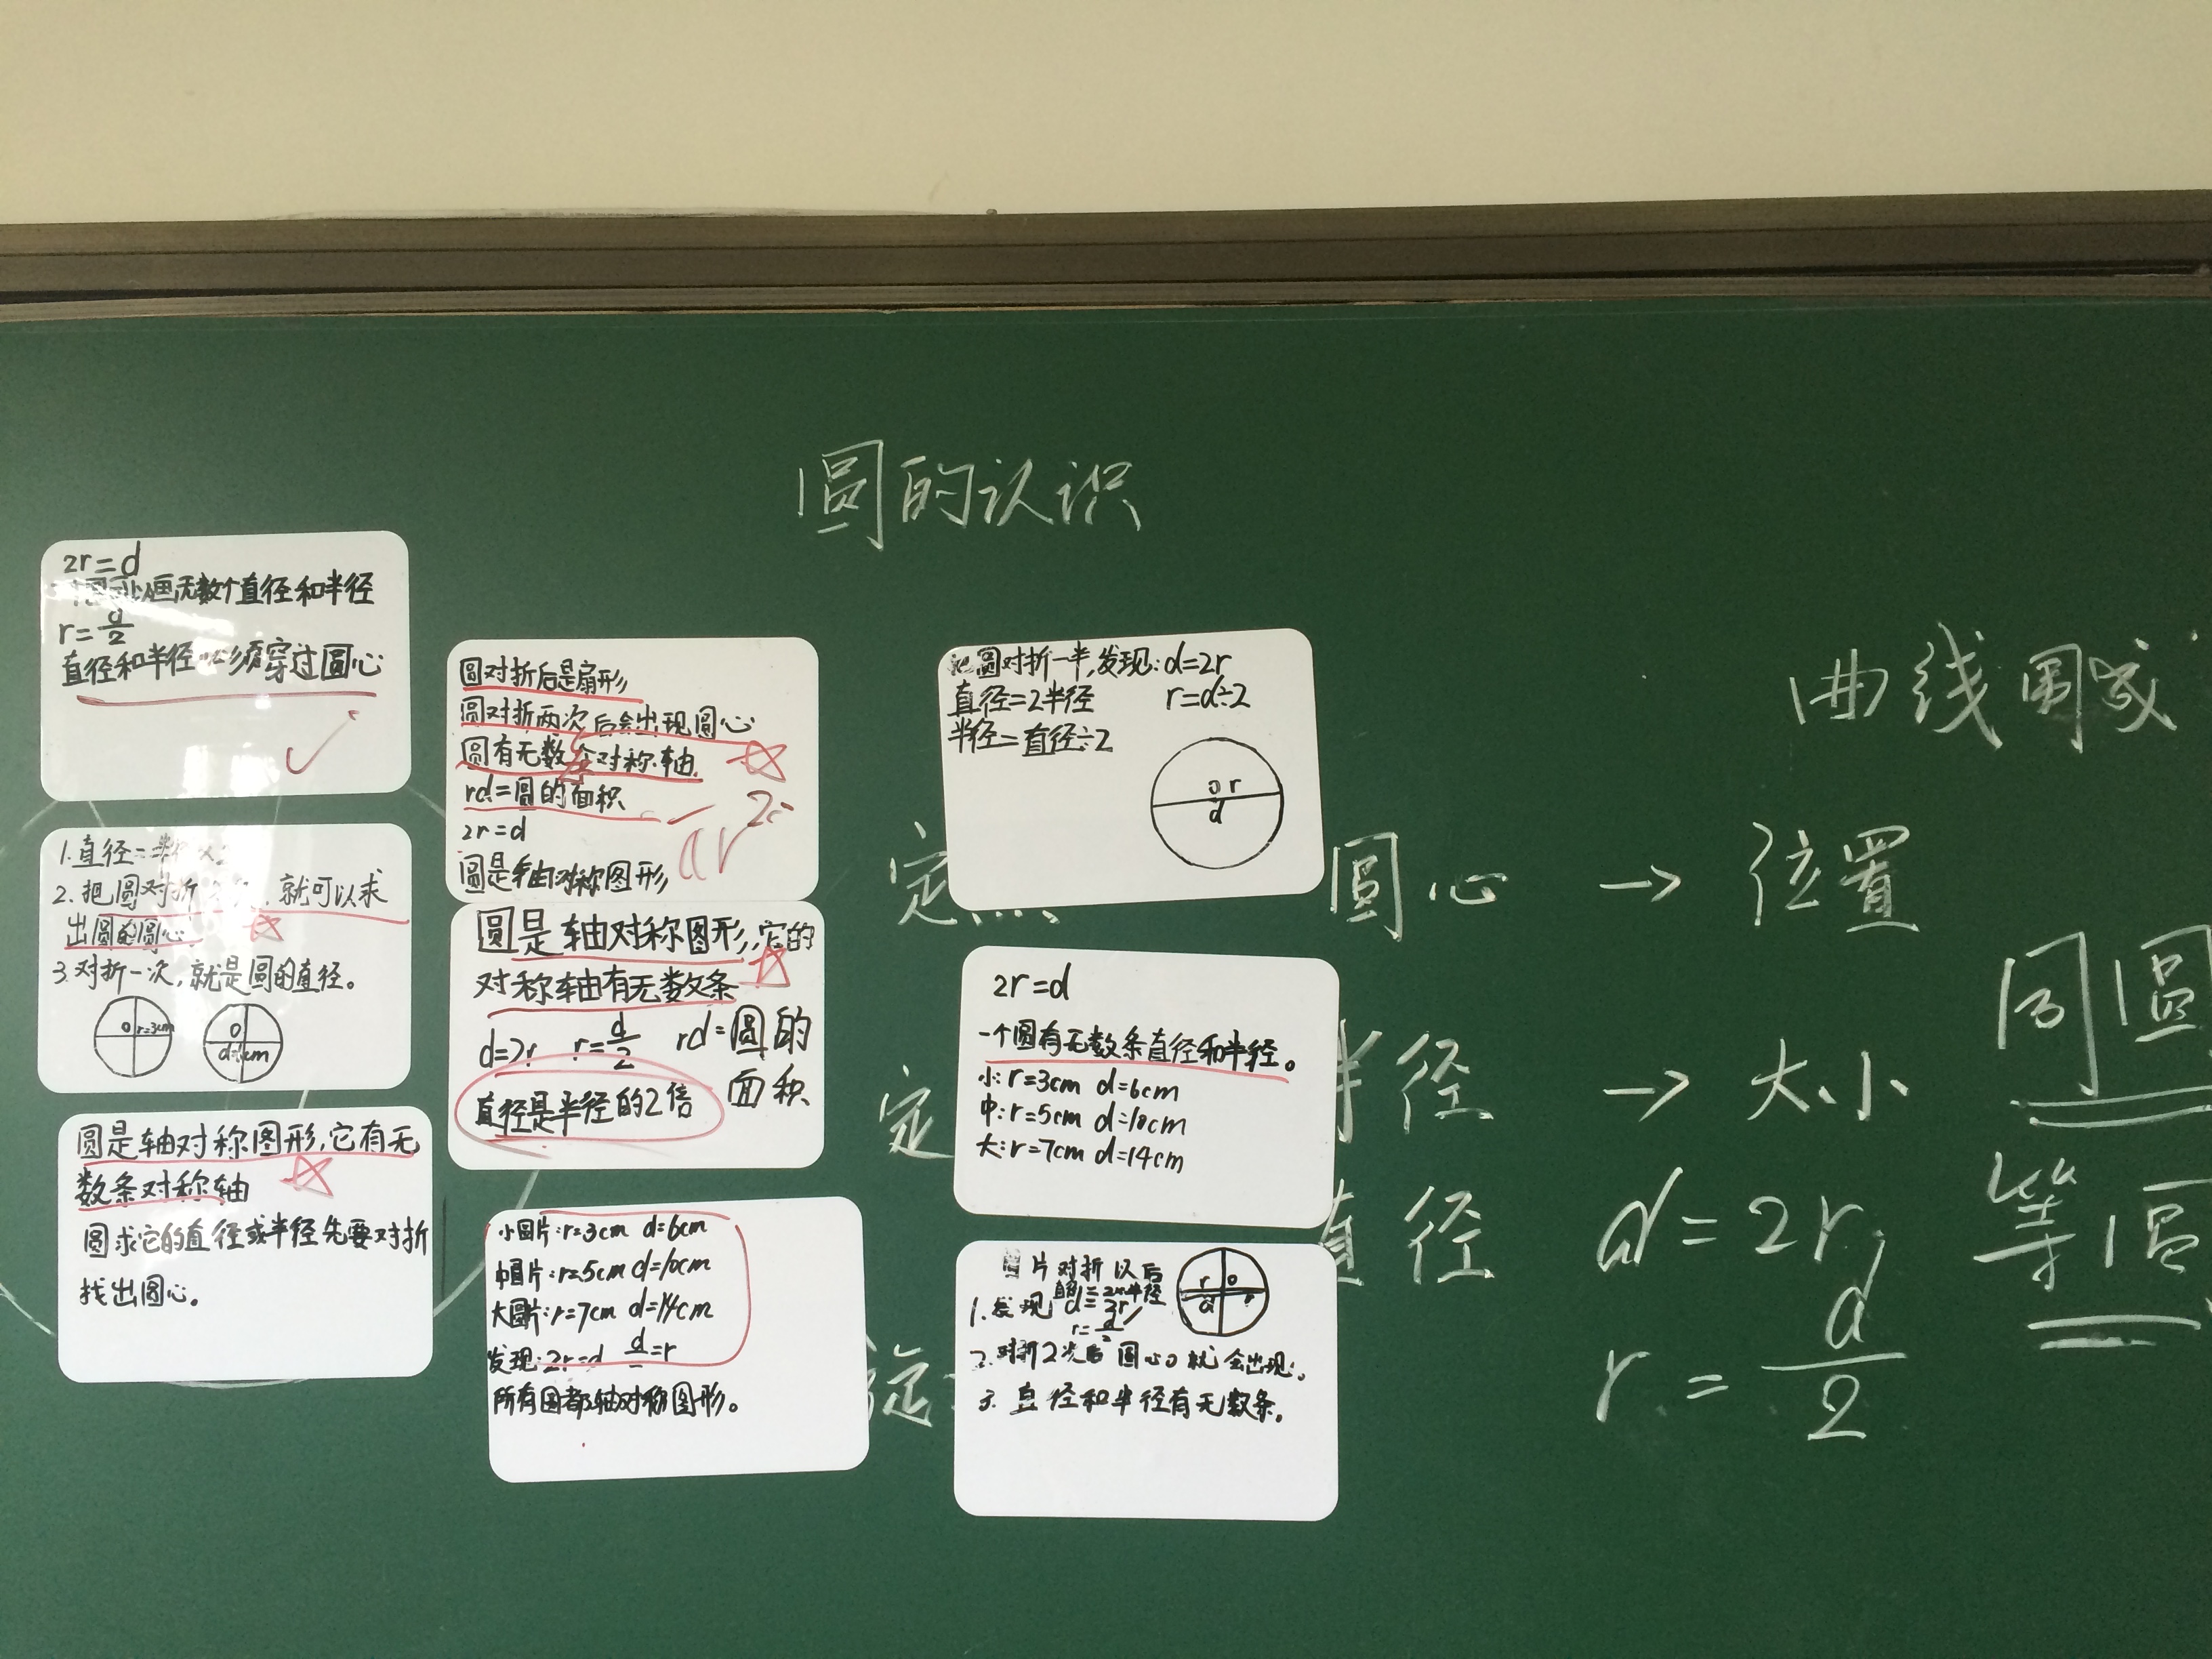 圆的认识
2r=d
圆可以画无数个直径和半径
r=d/2
直径和半径必须穿过圆心
1.直径=半径×2
2.把圆对折,就可以求
出圆的圆心
3.对折一次,就是圆的直径。
O r=3cm
O
圆是轴对称图形,它有无
数条对称轴
圆求它的直径或半径先要对折
找出圆心。
圆对折后是扇形
圆对折两次后会出现圆心
圆有无数条对称轴
rd=圆的面积
2r=d
圆是轴对称图形
圆是轴对称图形,它的
对称轴有无数条
d=2r r=d/2 rd=圆的
面积
直径是半径的2倍
小圆片:r=3cm d=6cm
中圆片:r=5cm d=10cm
大圆片:r=7cm d=14cm
发现:2r=d =r
所有圆都轴对称图形。
圆对折一半,发现:d=2r
直径=2半径 r=d÷2
半径=直径÷2
O r
d
2r=d
一个圆有无数条直径和半径。
小:r=3cm d=6cm
中:r=5cm d=10cm
大:r=7cm d=14cm
片对折以后
1.发现
r=d/2
r O
d r
2.对折2次后圆心O就会出现。
3.直径和半径有无数条。
曲线围成
定 圆心 → 位置
定 半径 → 大小
直径 d=2r
r=d/2
同圆
等圆